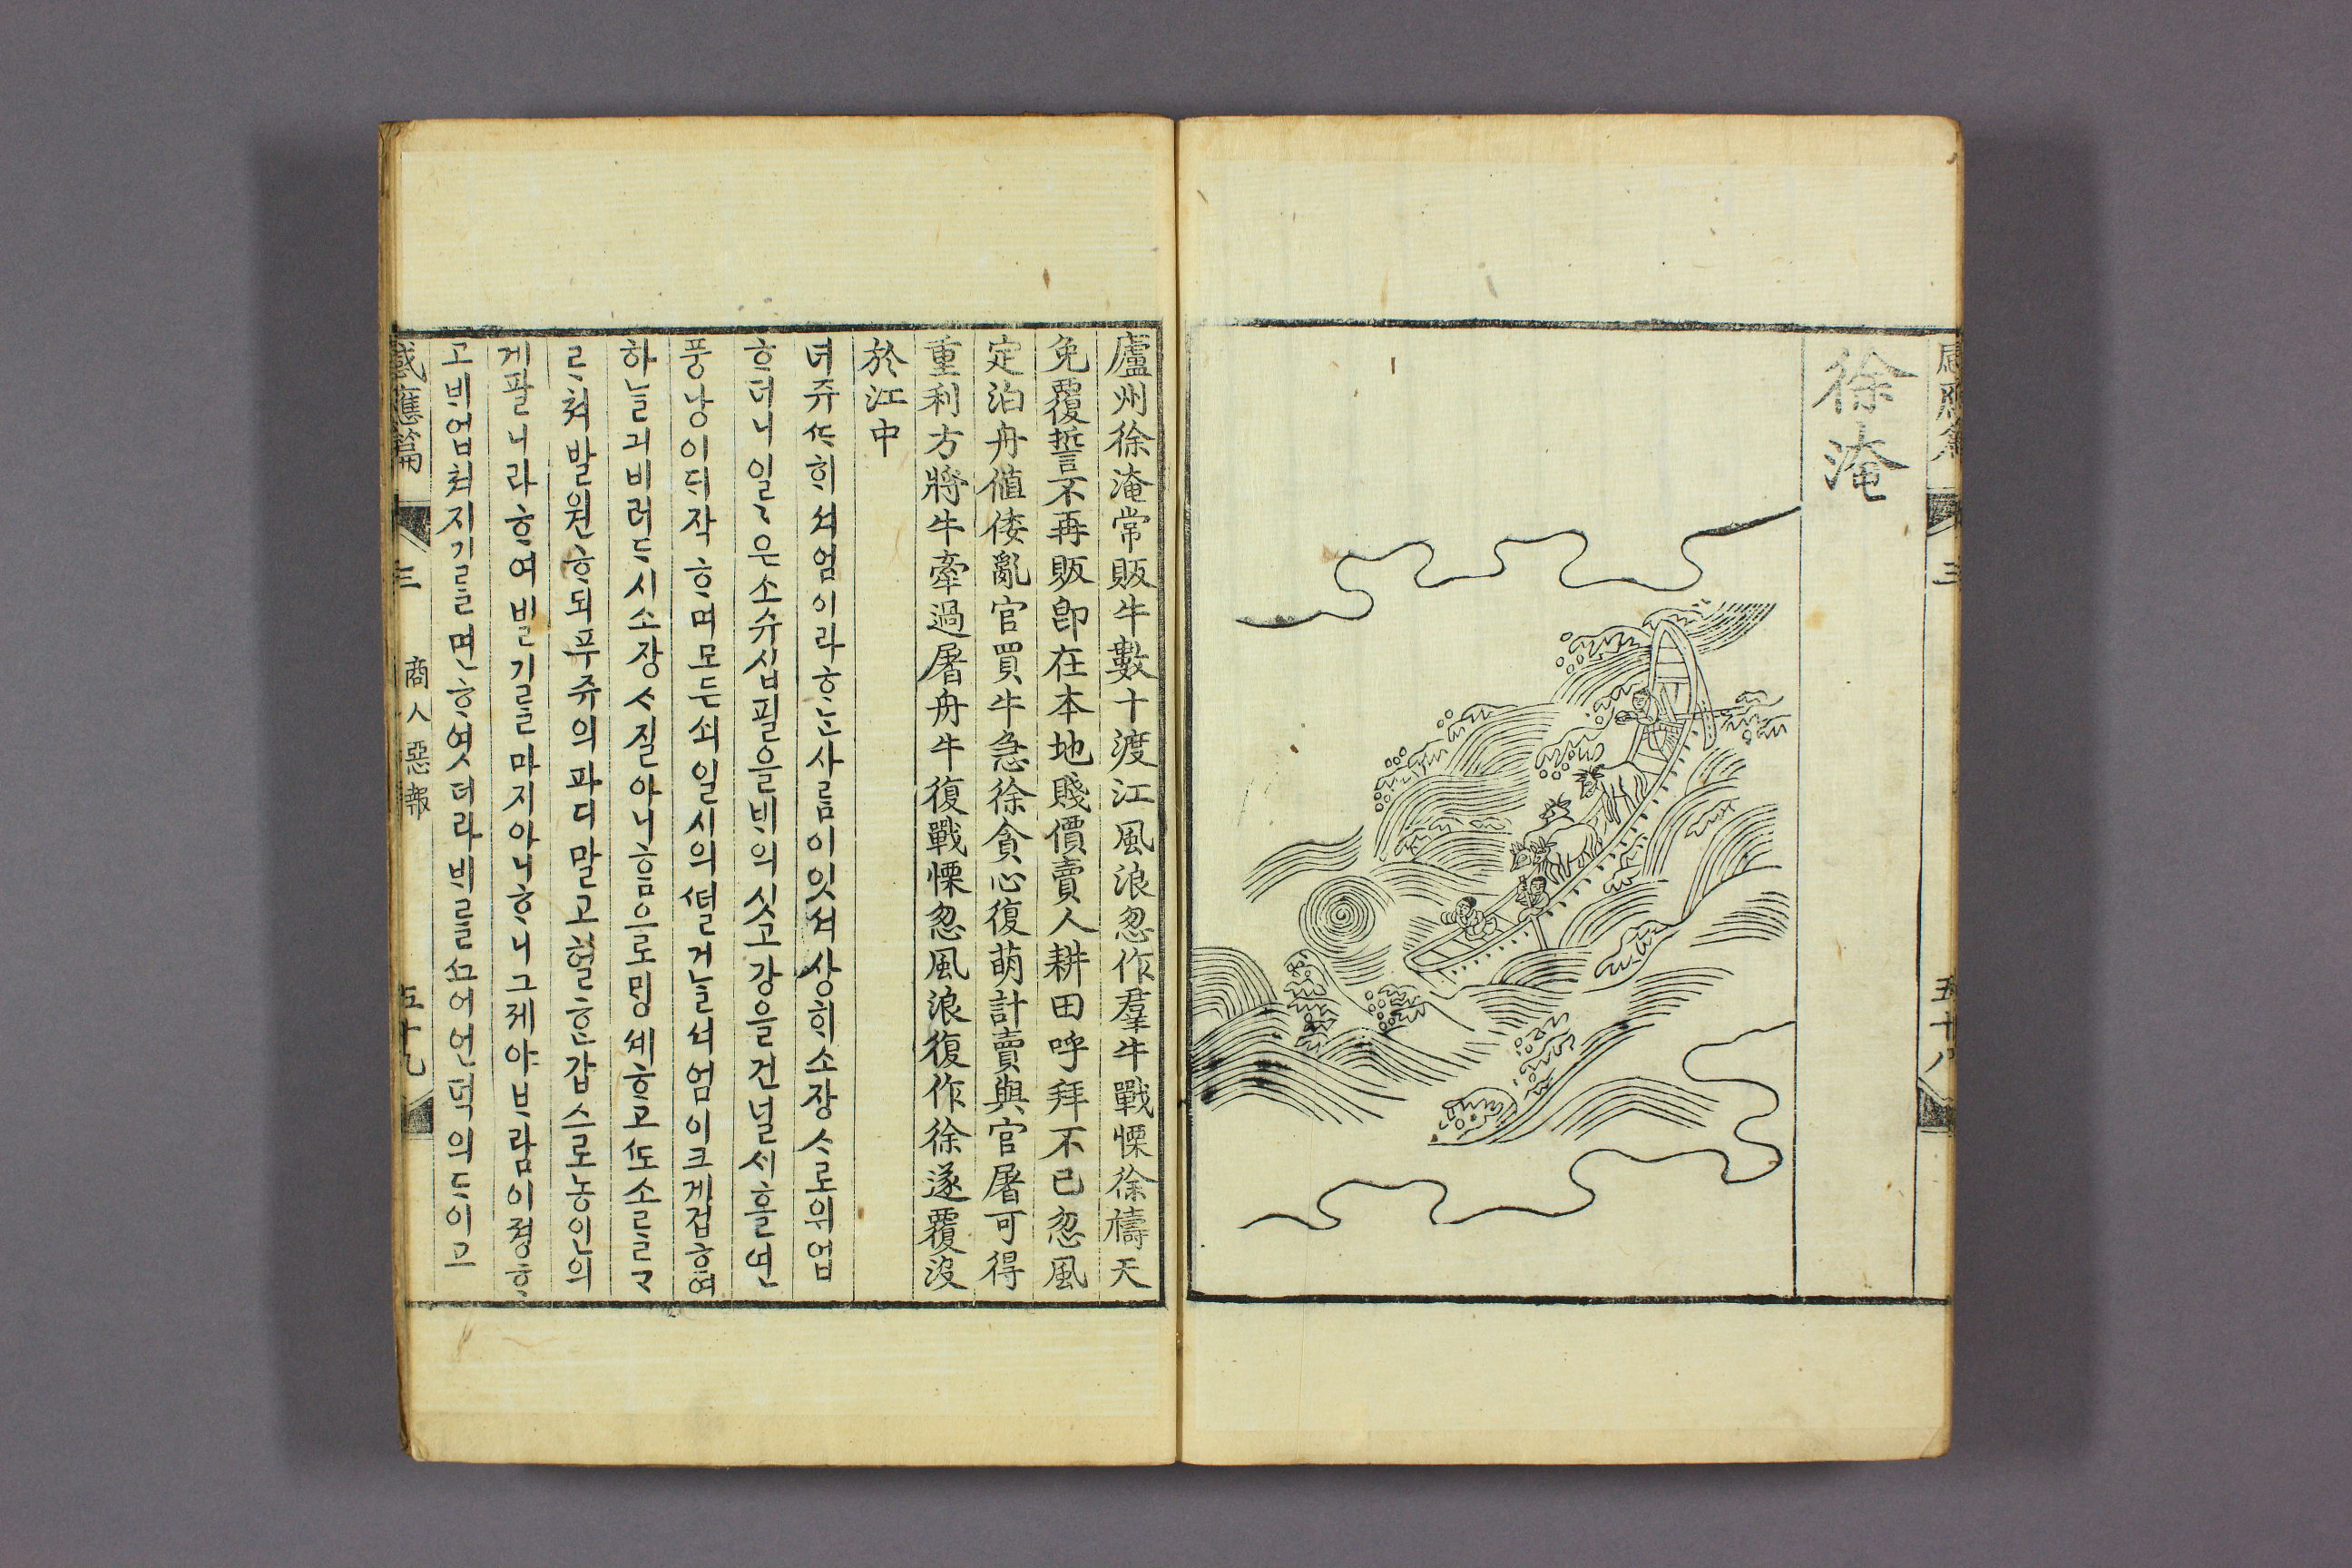 徐淹
三
五十八
廬州徐淹常販牛數十渡江風浪忽作羣牛戰慄徐禱天
免覆誓不再販卽在本地賤價賣人耕田呼拜不已忽風
定泊舟値倭亂官買牛急徐貪心復萌計賣與官屠可得
重利方將牛牽過屠舟牛復戰慄忽風浪復作徐遂覆沒
於江中
녀쥬ᄯᅡᄒᆡ셔엄이라ᄒᆞᄂᆞᆫ사ᄅᆞᆷ이잇셔샹ᄒᆡ소쟝ᄉᆞ로위업
ᄒᆞ더니일〻은소슈십필을ᄇᆡ의싯고강을건널ᄉᆡ홀연
풍낭이ᄃᆡ작ᄒᆞ며모든쇠일시의ᄯᅥᆯ거ᄂᆞᆯ셔엄이크게겁ᄒᆞ여
하ᄂᆞᆯ긔비러ᄃᆞ시소쟝ᄉᆞ질아니ᄒᆞᆷ으로ᄆᆡᆼ셰ᄒᆞ고ᄯᅩ소ᄅᆞᆯᄀᆞ
ᄅᆞ쳐발원ᄒᆞ되푸쥬의파디말고헐ᄒᆞᆫ갑ᄉᆞ로농인의
게팔니라ᄒᆞ여빌기ᄅᆞᆯ마지아니ᄒᆞ니그제야ᄇᆞ람이졍ᄒᆞ
고ᄇᆡ업쳐지기ᄅᆞᆯ면ᄒᆞ엿더라ᄇᆡᄅᆞᆯᄭᅳ어언덕의ᄃᆞ이고
感應篇
三
商人惡報
五十九